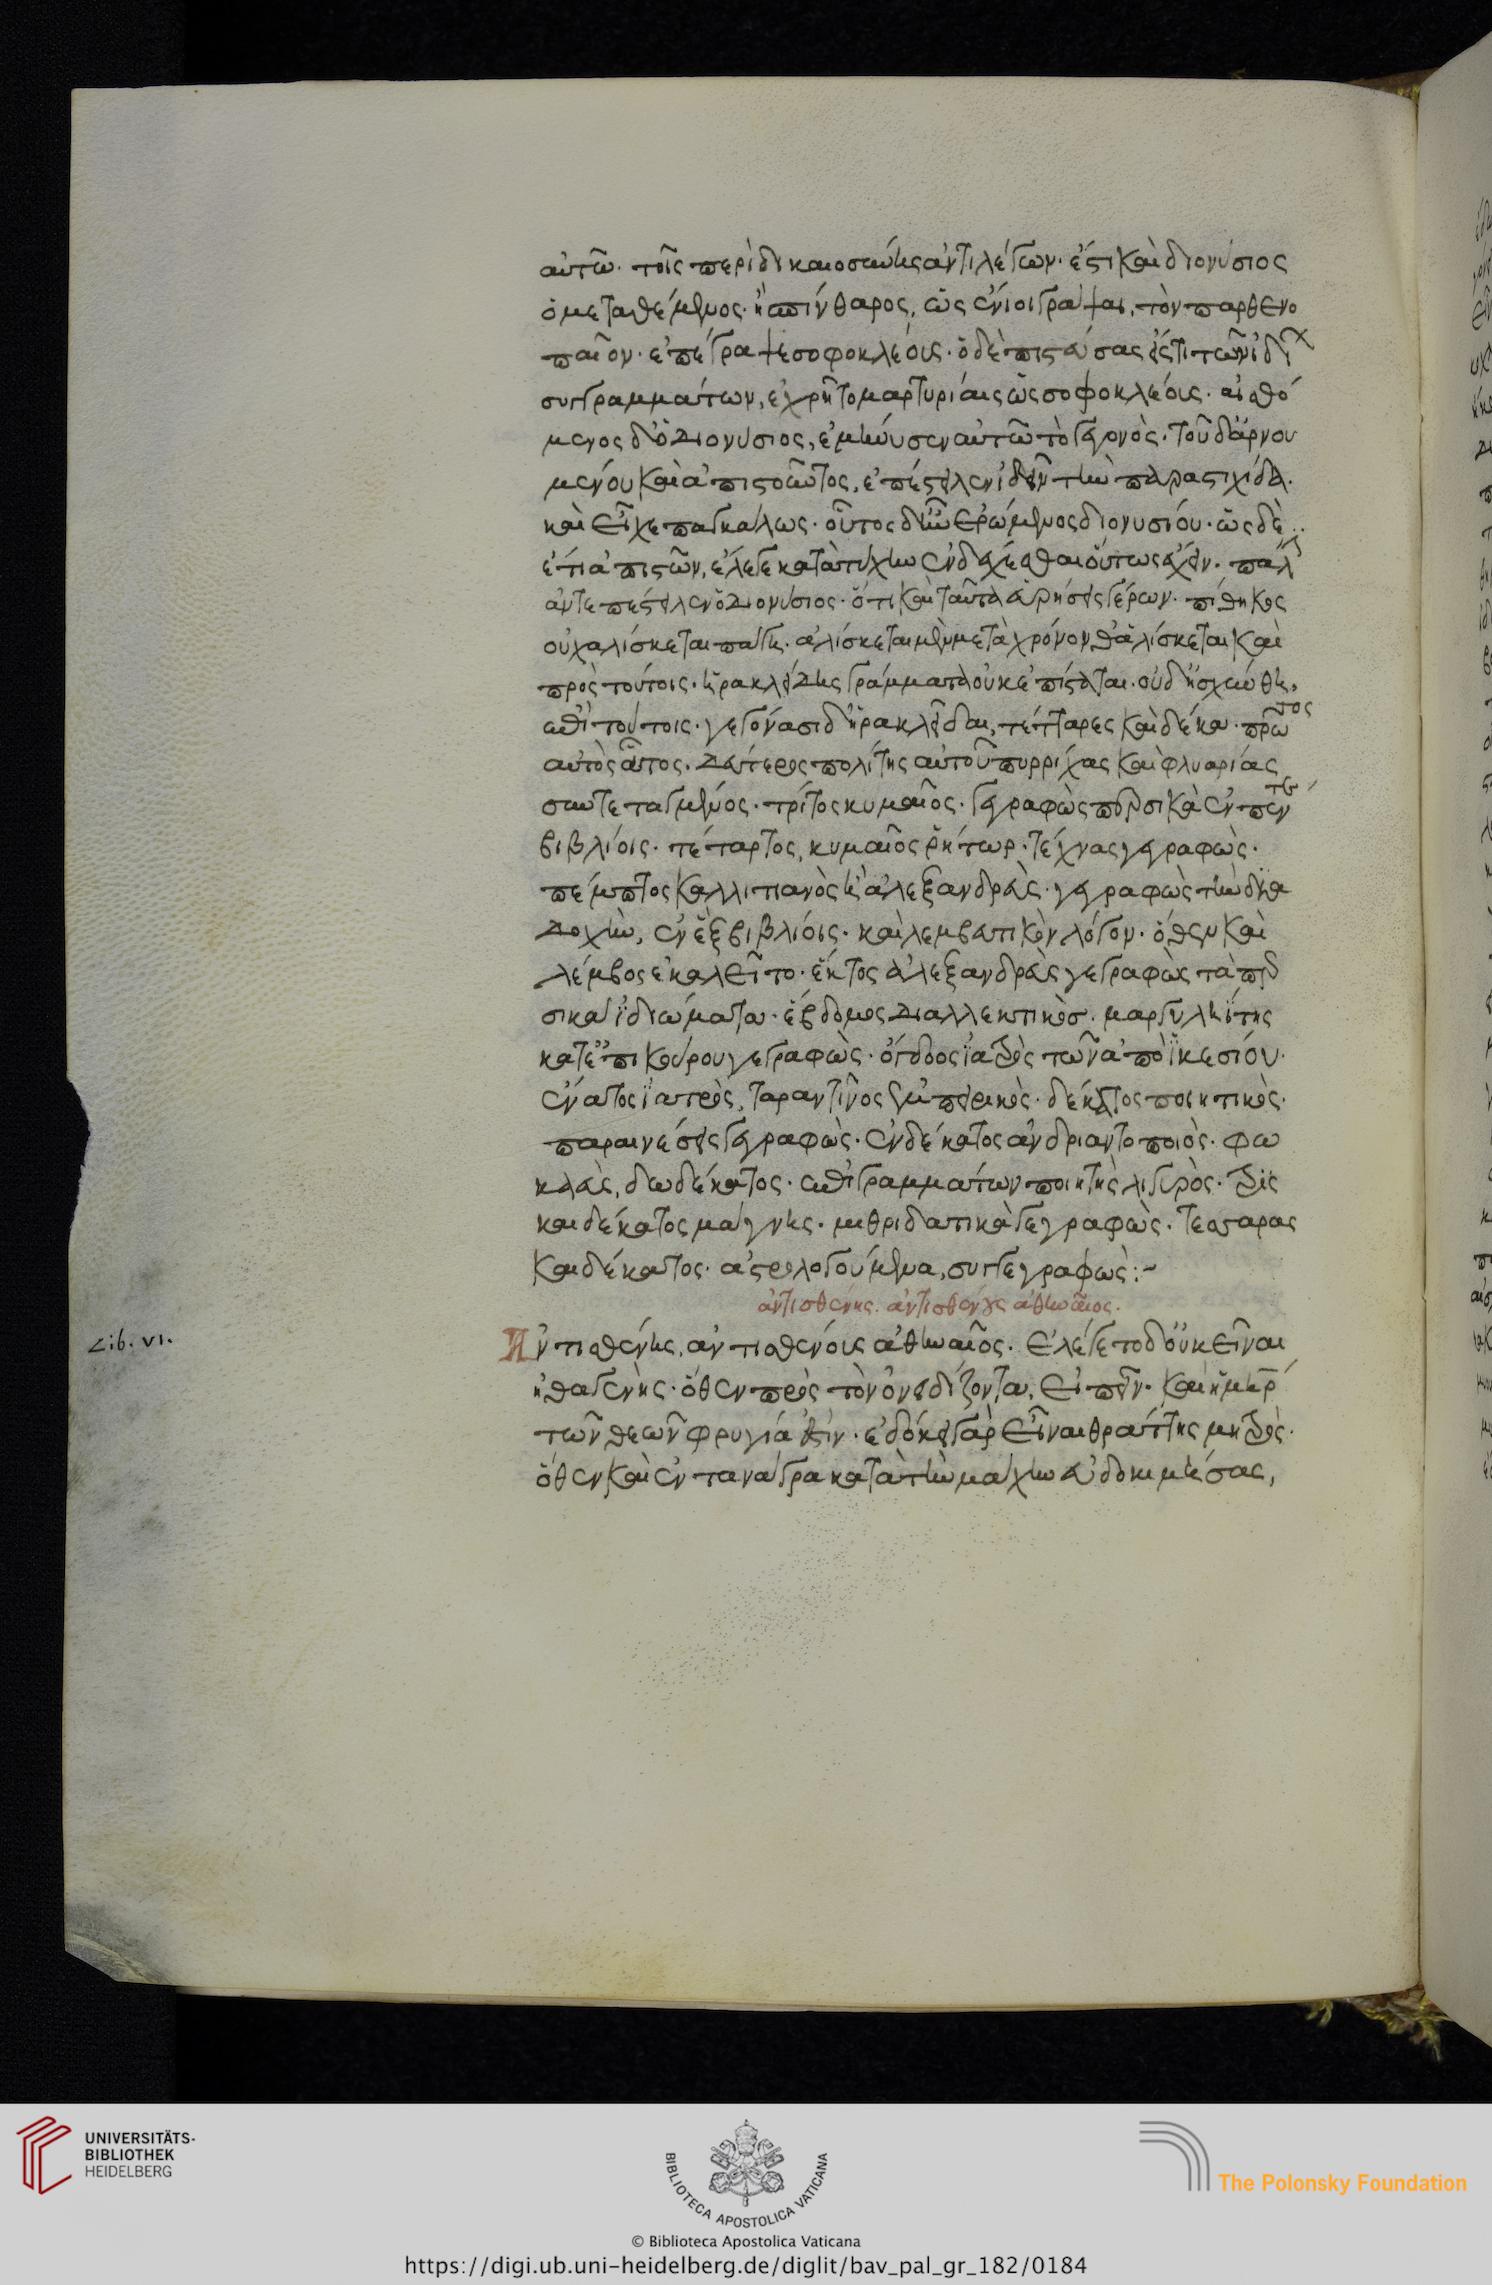 αὐτῶ. τοῖς περὶ δικαιοσύνης ἀντιλέγων. ἔτι καὶ διονύσιος
ὁ μεταθέμενος. ἢ σπίνθαρος, ὡς ἔνιοι γράψαι, τὸν παρθενο
παῖον. ἐπέγραψε σοφοκλέους. ὁ δὲ πιστεύσας ἔς τι τῶν ἰδί
συγγραμμάτων, ἐχρῆτο μαρτυρίαις ὡς σοφοκλέους. αἰσθό
μενος δ' ὁ Διονύσιος, ἐμήνυσεν αὐτῶ τὸ γεγονὸς. τοῦ δ' ἀρνου
μένου καὶ ἀπιστοῦντος, ἐπέστειλεν ἰδεῖν τὴν παραστιχίδα.
καὶ εἶχε παγκάλως. οὗτος δ' ἦν ἐρώμενος διονυσίου. ὡς δὲ
ἔτι ἀπιστῶν, ἔλεγε κατὰ τύχην ἐνδέχεσθαι οὕτως ἔχειν. πάλ
ἀντεπέστειλεν ὁ Διονύσιος. ὅτι καὶ ταῦτα εὑρήσεις γέρων. πίθηκος
οὐχ ἁλίσκεται πάγης. ἁλίσκεται μὲν μετὰ χρόνον δ' ἁλίσκεται καὶ
πρὸς τούτοις. ἡρακλείδης γράμματα οὐκ ἐπίσταται. οὐδ' ἠσχύνθη.
ἐπὶ τούτοις. γεγόνασι δ' ἡρακλεῖδαι, τέτταρες καὶ δέκα. πρῶτος
αὐτὸς οὗτος. Δεύτερος πολίτης αὐτοῦ πυρρίχας καὶ φλυαρίας
συντεταγμένος. τρίτος κυμαῖος. γεγραφὼς περσικὰ ἐν πέντε
βιβλίοις. τέταρτος, κυμαῖος ῥήτωρ. τέχνας γεγραφὼς.
πέμπτος καλλιτιανὸς ἢ ἀλεξανδρεὺς. γεγραφὼς τὴν δια
Δοχὴν, ἐν ἓξ βιβλίοις. καὶ λεμβευτικὸν λόγον. ὅθεν καὶ
λέμβος ἐκαλεῖτο. ἕκτος ἀλεξανδρεὺς γεγραφὼς τὰ περ
σικὰ ἰδιώματα. ἕβδομος Διαλλεκτικὸσ. μαργυληΐτης
κατ' ἐπικούρου γεγραφὼς. ὄγδοος ἰατρὸς τῶν ἀπὸ ἱκεσίου.
ἔνατος ἰατρὸς, ταραντῖνος ἐμπειρικὸς. δέκατος ποιητικὸς.
παραινέσεις γεγραφὼς. ἑνδέκατος ἀνδριαντοποιὸς. φω
καεὺς, δωδέκατος. ἐπιγραμμάτων ποιητὴς λιγυρὸς. τρις
καιδέκατος μάγνης. μιθριδατικὰ γεγραφὼς. τεσσαρας
καιδέκατος. ἀστρολογούμενα, συγγεγραφὼς:~
ἀντισθένης. ἀντισθένους ἀθηναῖος.
Lib. VI.
Ἀντισθένης, ἀντισθένους ἀθηναῖος. ἐλέγετο δ' οὐκ εἶναι
ἠθαγενὴς. ὅθεν πρὸς τὸν ὀνειδίζοντα, εἰπεῖν. καὶ ἡ μήτηρ
τῶν θεῶν φρυγία ἐστίν. ἐδόκει γὰρ εἶναι θράττης μητρὸς.
ὅθεν καὶ ἐν τανάγρα κατὰ τὴν μάχην εὐδοκιμήσας,
UNIVERSITÄTS-
BIBLIOTHEK
HEIDELBERG
BIBLIOTECA APOSTOLICA VATICANA
The Polonsky Foundation
© Biblioteca Apostolica Vaticana
https://digi.ub.uni-heidelberg.de/diglit/bav_pal_gr_182/0184